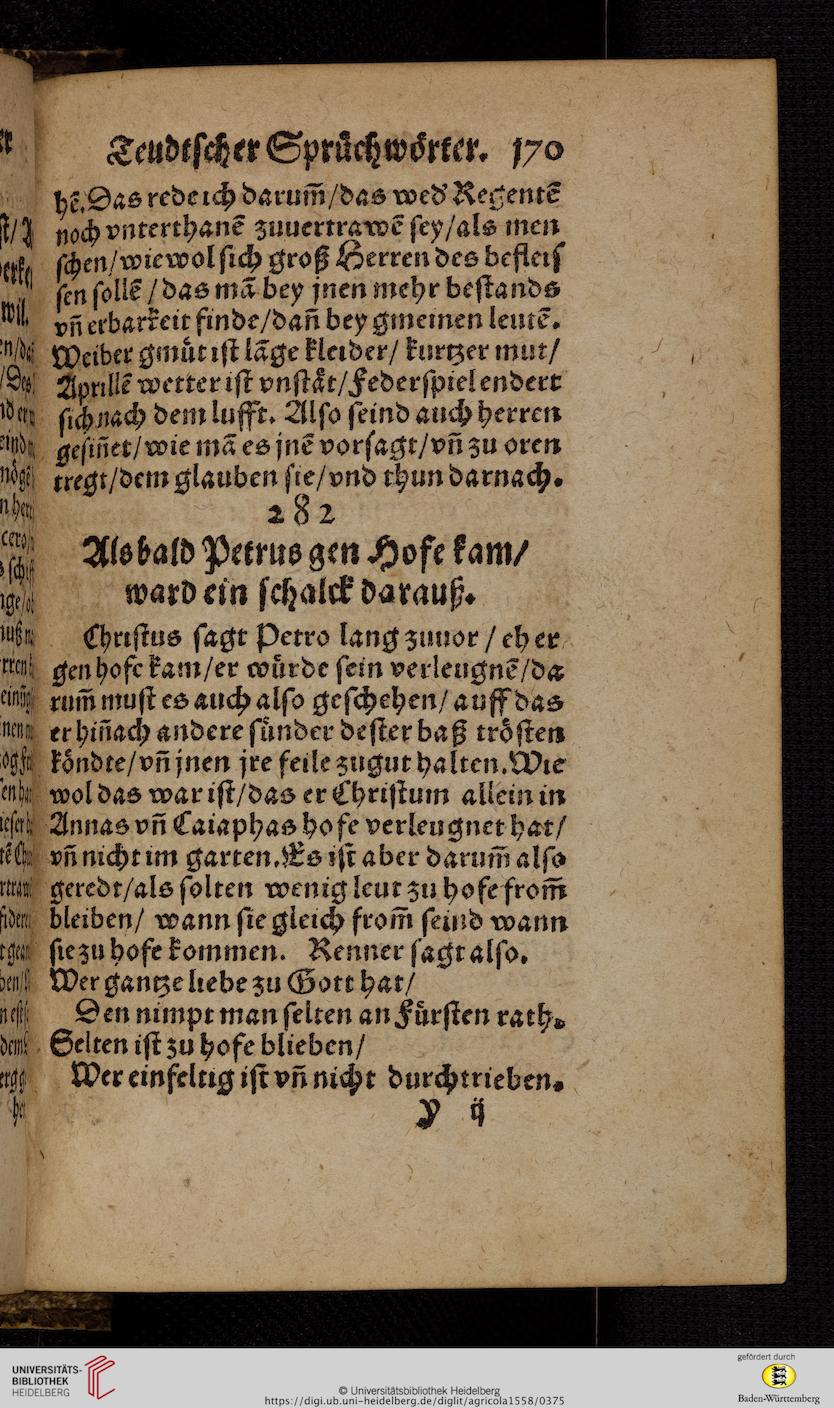 Teudtſcher Spruͤchwoͤrter. 170
hẽ. Das rede ich darum̃/das wed' Regentẽ
noch vnterthanẽ zuuertrawẽ ſey/als men
ſchen/wiewol ſich groß Herren des befleiſ
ſen ſollẽ/das mã bey jnen mehr beſtands
vñ erbarkeit finde/dañ bey gmeinen leutẽ.
Weiber gmuͤt iſt lãge kleider/ kurtzer mut/
Aprillẽ wetter iſt vnſtaͤt/Federſpiel endert
ſich nach dem lufft. Alſo ſeind auch herren
geſiñet/wie mã es jnẽ vorſagt/vñ zu oren
tregt/dem glauben ſie/vnd thun darnach.
282
Als bald Petrus gen Hofe kam/
ward ein ſchalck darauß.
Chriſtus ſagt Petro lang zuuor / eh er
gen hofe kam/er wuͤrde ſein verleugnẽ/da
rum̃ muſt es auch alſo geſchehen/ auff das
er hiñach andere ſuͤnder deſter baß troͤſten
koͤndte/vñ jnen jre feile zugut halten. Wie
wol das war iſt/das er Chriſtum allein in
Annas vñ Caiaphas hofe verleugnet hat/
vñ nicht im garten. Es iſt aber darum̃ alſo
geredt/als ſolten wenig leut zu hofe from̃
bleiben/ wann ſie gleich from̃ ſeind wann
ſie zu hofe kommen. Renner ſagt alſo.
Wer gantze liebe zu Gott hat/
Den nimpt man ſelten an Fuͤrſten rath.
Selten iſt zu hofe blieben/
Wer einfeltig iſt vñ nicht durchtrieben.
Y ij
UNIVERSITÄTS-
BIBLIOTHEK
HEIDELBERG
© Universitätsbibliothek Heidelberg
https://digi.ub.uni-heidelberg.de/diglit/agricola1558/0375
gefördert durch
Baden-Württemberg